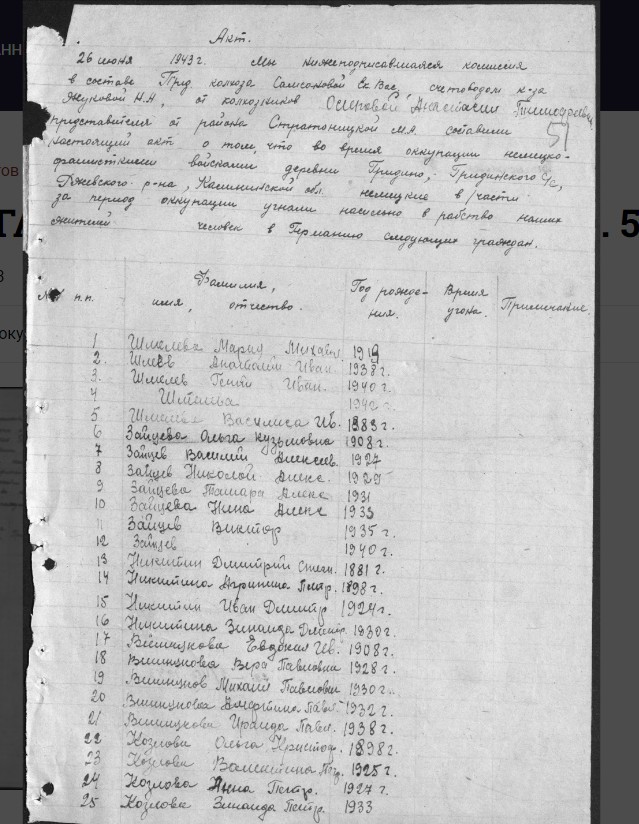 Акт.
26 июня 1943 г. Мы нижеподписавшаяся комиссия
в составе Пред. колхоза Самсоновой Ек Вас, счетоводом к-за
Якуновой Н.А, от колхозников Осиповой Анастасии
представителя от района Стратоницкой М.А. составили
51
настоящий акт о том, что во время оккупации немецко-
фашисткими войсками деревни Гридино, Гридинского С/с,
Ржевского р-на, Калининской обл. немецкие в/части
за период оккупации угнали насильно в рабство наших
жителей человек в Германию следующих граждан.
п.п. Фамилия, имя, отчество. Год рожде-ния. Время угона. Примечание.
1 Шмелева Мария Михайл. 1919
2. Анатолий Иван. 1938 г.
3. Шмелев Иван. 1940 г.
4
5 Василиса Ив. 1883 г.
6 Зайцева Ольга Кузьмовна 1908 г.
7 Зайцев Василий Алексеев. 1927
8 Зайцев Николай Алекс. 1929
9 Зайцева Тамара Алекс 1931
10 Зайцева Нина Алекс 1933
11 Зайцев Виктор 1935 г.
12 Зайцев 1940 г.
13 Никитин Дмитрий Степ. 1881 г.
14 Никитина Агрипина Петр. 1898 г.
15 Никитин Иван Дмитр 1924 г.
16 Никитина Зинаида Дмитр. 1930 г.
17 Евдокия Ив. 1908 г.
18 Вера Павловна 1928 г.
19 Михаил Павлович 1930 г.
20 Павл. 1932 г.
21 Ираида Павл. 1938 г.
22 Козлова Ольга Христоф. 1898 г.
23 Козлова Валентина 1925 г.
24 Козлова Анна Петр. 1927 г.
25 Козлова Зинаида Петр. 1933